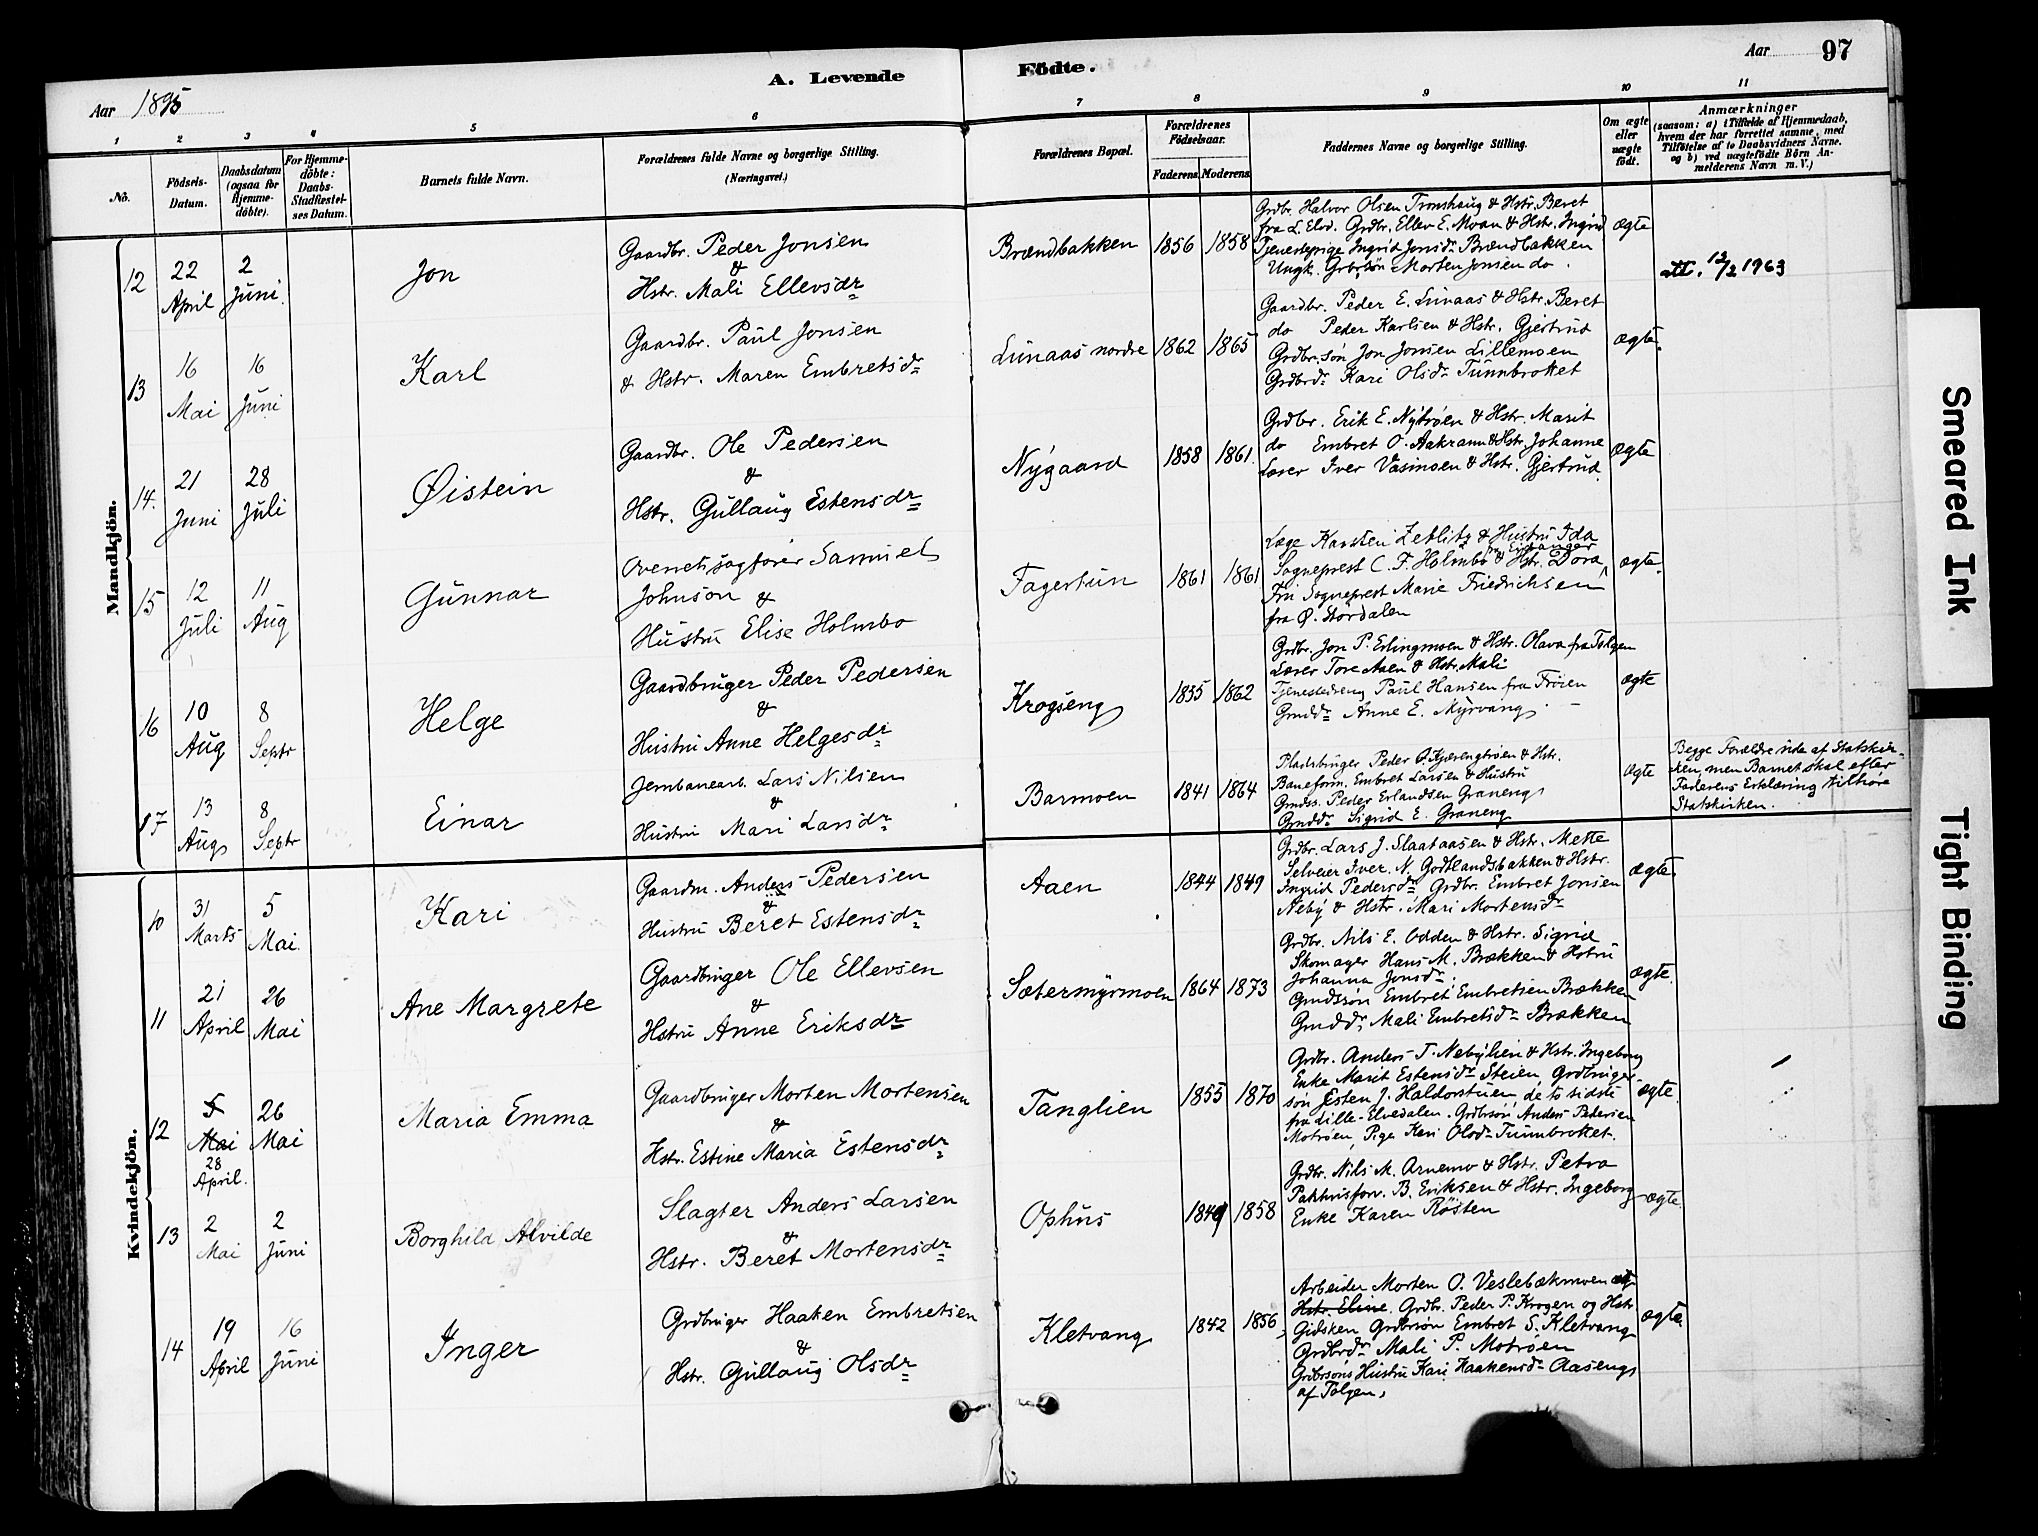 A. Levende Födte.
Aar 1895
Aar 97
1 2 3 4 5 6 7 8 9 10 11
No.
Födsels-Datum.
Daabsdatum (ogsaa for Hjemmedöbte).
For Hjemmedöbte: Daabs-Stadfæstelses Datum.
Barnets fulde Navn.
Forældrenes fulde Navne og borgerlige Stilling.
(Næringsvei.)
Forældrenes Bopæl.
Forældrenes Födselsaar.
Faderens. Moderens.
Faddernes Navne og borgerlige Stilling.
Om ægte eller uægte födt.
Anmærkninger
(saasom: a) i Tilfælde af Hjemmedaab,
hvem der har forrettet samme, med
Tilföielse af to Daabsvidners Navne.
og b) ved uægtefödte Börn Anmelderens Navn m. V.)
Mandkjön.
12 22 April 2 Juni. Jon
Gaardbr. Peder Jonsen
&
Hstr. Mali Ellevsdr
Brændbakken 1856 1858
Grdbr. Halvor Olsen Tronshaug & Hstr. Beret
fra L. Elvd. Grdbr. Ellev E. Moan & Hstr. Ingrid
Tjenestepige Ingrid Jonsdr Brændbakken
Ungk. Grbrsön Morten Jonsen do.
ægte
12/2 1963
13 16 Mai 16 Juni Karl
Gaardbr. Paul Jonsen
& Hstr. Maren Embretsdr
Lunaas nordre 1862 1865
Gaardbr. Peder E. Lunaas & Hstr. Beret
do Peder Karlsen & Hstr. Gjertrud
Grdbr.sön Jon Jonsen Lillemoen
Grdbrdr Kari Olsdr Tunnbroket
ægte.
14. 21 Juni 28 Juli Øistein
Gaardbr. Ole Pedersen
&
Hstr. Gullaug Estensdr
Nygaard 1858 1861
Grdbr. Erik E. Nytrøen & Hstr. Marit
do Embret O. Aakrann & Hstr. Johanne
Lærer Iver Vasmoen & Hstr. Gjertrud.
ægte
15 12 Juli 11 Aug Gunnar
Overretssagfører Samuel
Johnson &
Hustru Elise Holmbo
Fagertun 1861 1861
Læge Karsten Zetlitz & Hustru Ida
Sogneprest C. F. Holmbo & Hstr. Dora
Fru Sogneprest Marie Friedrichsen
fra Ø. Stördalen
ægte.
16 10 Aug 8 Septr Helge
Gaardbruger Peder Pedersen
&
Hustru Anne Helgesdr
Krogseng 1835 1862
Grdbr. Jon P. Erlingmoen & Hstr. Olava fra Tolgen
Lærer Tore Aaen & Hstr. Mali
Tjenestedreng Paul Hansen fra Frøien
Grmddr Anne E. Myrvang.
ægte
17 13 Aug 8 Septr Einar
Jernbanearb. Lars Nilsen
&
Hustru Mari Larsdr
Barmoen 1841 1864
Pladsbruger Peder O. Kjærengtrøen & Hstr.
Baneform. Embret Larsen & Hustru
Grmdss. Peder Erlandsen Graneng
Grmddr Sigrid E. Graneng
Ægte
Begge Forældre ude af Statskirken,
men Barnet skal efter
Faderens Erklæring tilhøre
Statskirken.
Kvindekjön.
10 31 Marts 5 Mai. Kari
Gaardm. Anders Pedersen
&
Hustru Beret Estensdr
Aaen 1844 1849
Grdbr. Lars J. Slaataasen & Hstr. Mette
Selveier Iver N. Godtlandsbakken & Hstr.
Ingrid Pedersdr Grdbr. Embret Jonsen
Neby & Hstr. Mari Mortensdr
ægte
11 21 April 26 Mai Ane Margrete
Gaardbruger Ole Ellevsen
&
Hstru Anne Eriksdr
Sætermyrmoen 1864 1873
Grdbr. Nils E. Odden & Hstr. Sigrid
Skomager Hans M. Brækken & Hstru
Johanna Jonsdr
Grmdssøn Embret Embretsen Brækken
Grmddr Mali Embretsdr Brækken
ægte.
12 5 Mai 28 April. 26 Mai Maria Emma
Gaardbruger Morten Mortensen
&
Hstr. Estine Maria Estensdr
Tanglien 1855 1870
Grdbr. Anders T. Nebylien & Hstr. Ingeborg
Enke Marit Estensdr Steien Grdbruger
søn Esten J. Haldorstuen, de to sidste
fra Lille-Elvedalen. Grdbrsøn Anders Pedersen
Motrøen, Pige Kari Olsdr Tunnbroket.
ægte.
13 2 Mai 2 Juni Borghild Alvilde
Slagter Anders Larsen
&
Hstr. Beret Mortensdr
Ophus 1849 1858
Grdbr. Nils M. Arnemo & Hstr. Petra
Pakhusforv. B. Eriksen & Hstr. Ingeborg
Enke Karen Røsten
ægte.
14 19 April 16 Juni Inger
Grdbruger Haaken Embretsen
&
Hstr. Gullaug Olsdr
Kletvang 1842 1856
Arbeider Morten O. Veslebækmoen og
Hstr. Eline. Grdbr. Peder P. Krogen og Hstr
Gidsken Grdbrsøn Embret S. Kletvang
Grdbrdr Mali P. Motrøen
Grdbrsøns Hustru Kari Haakensdr Aaseng
af Tolgen.
ægte.
Smeared Ink
Tight Binding